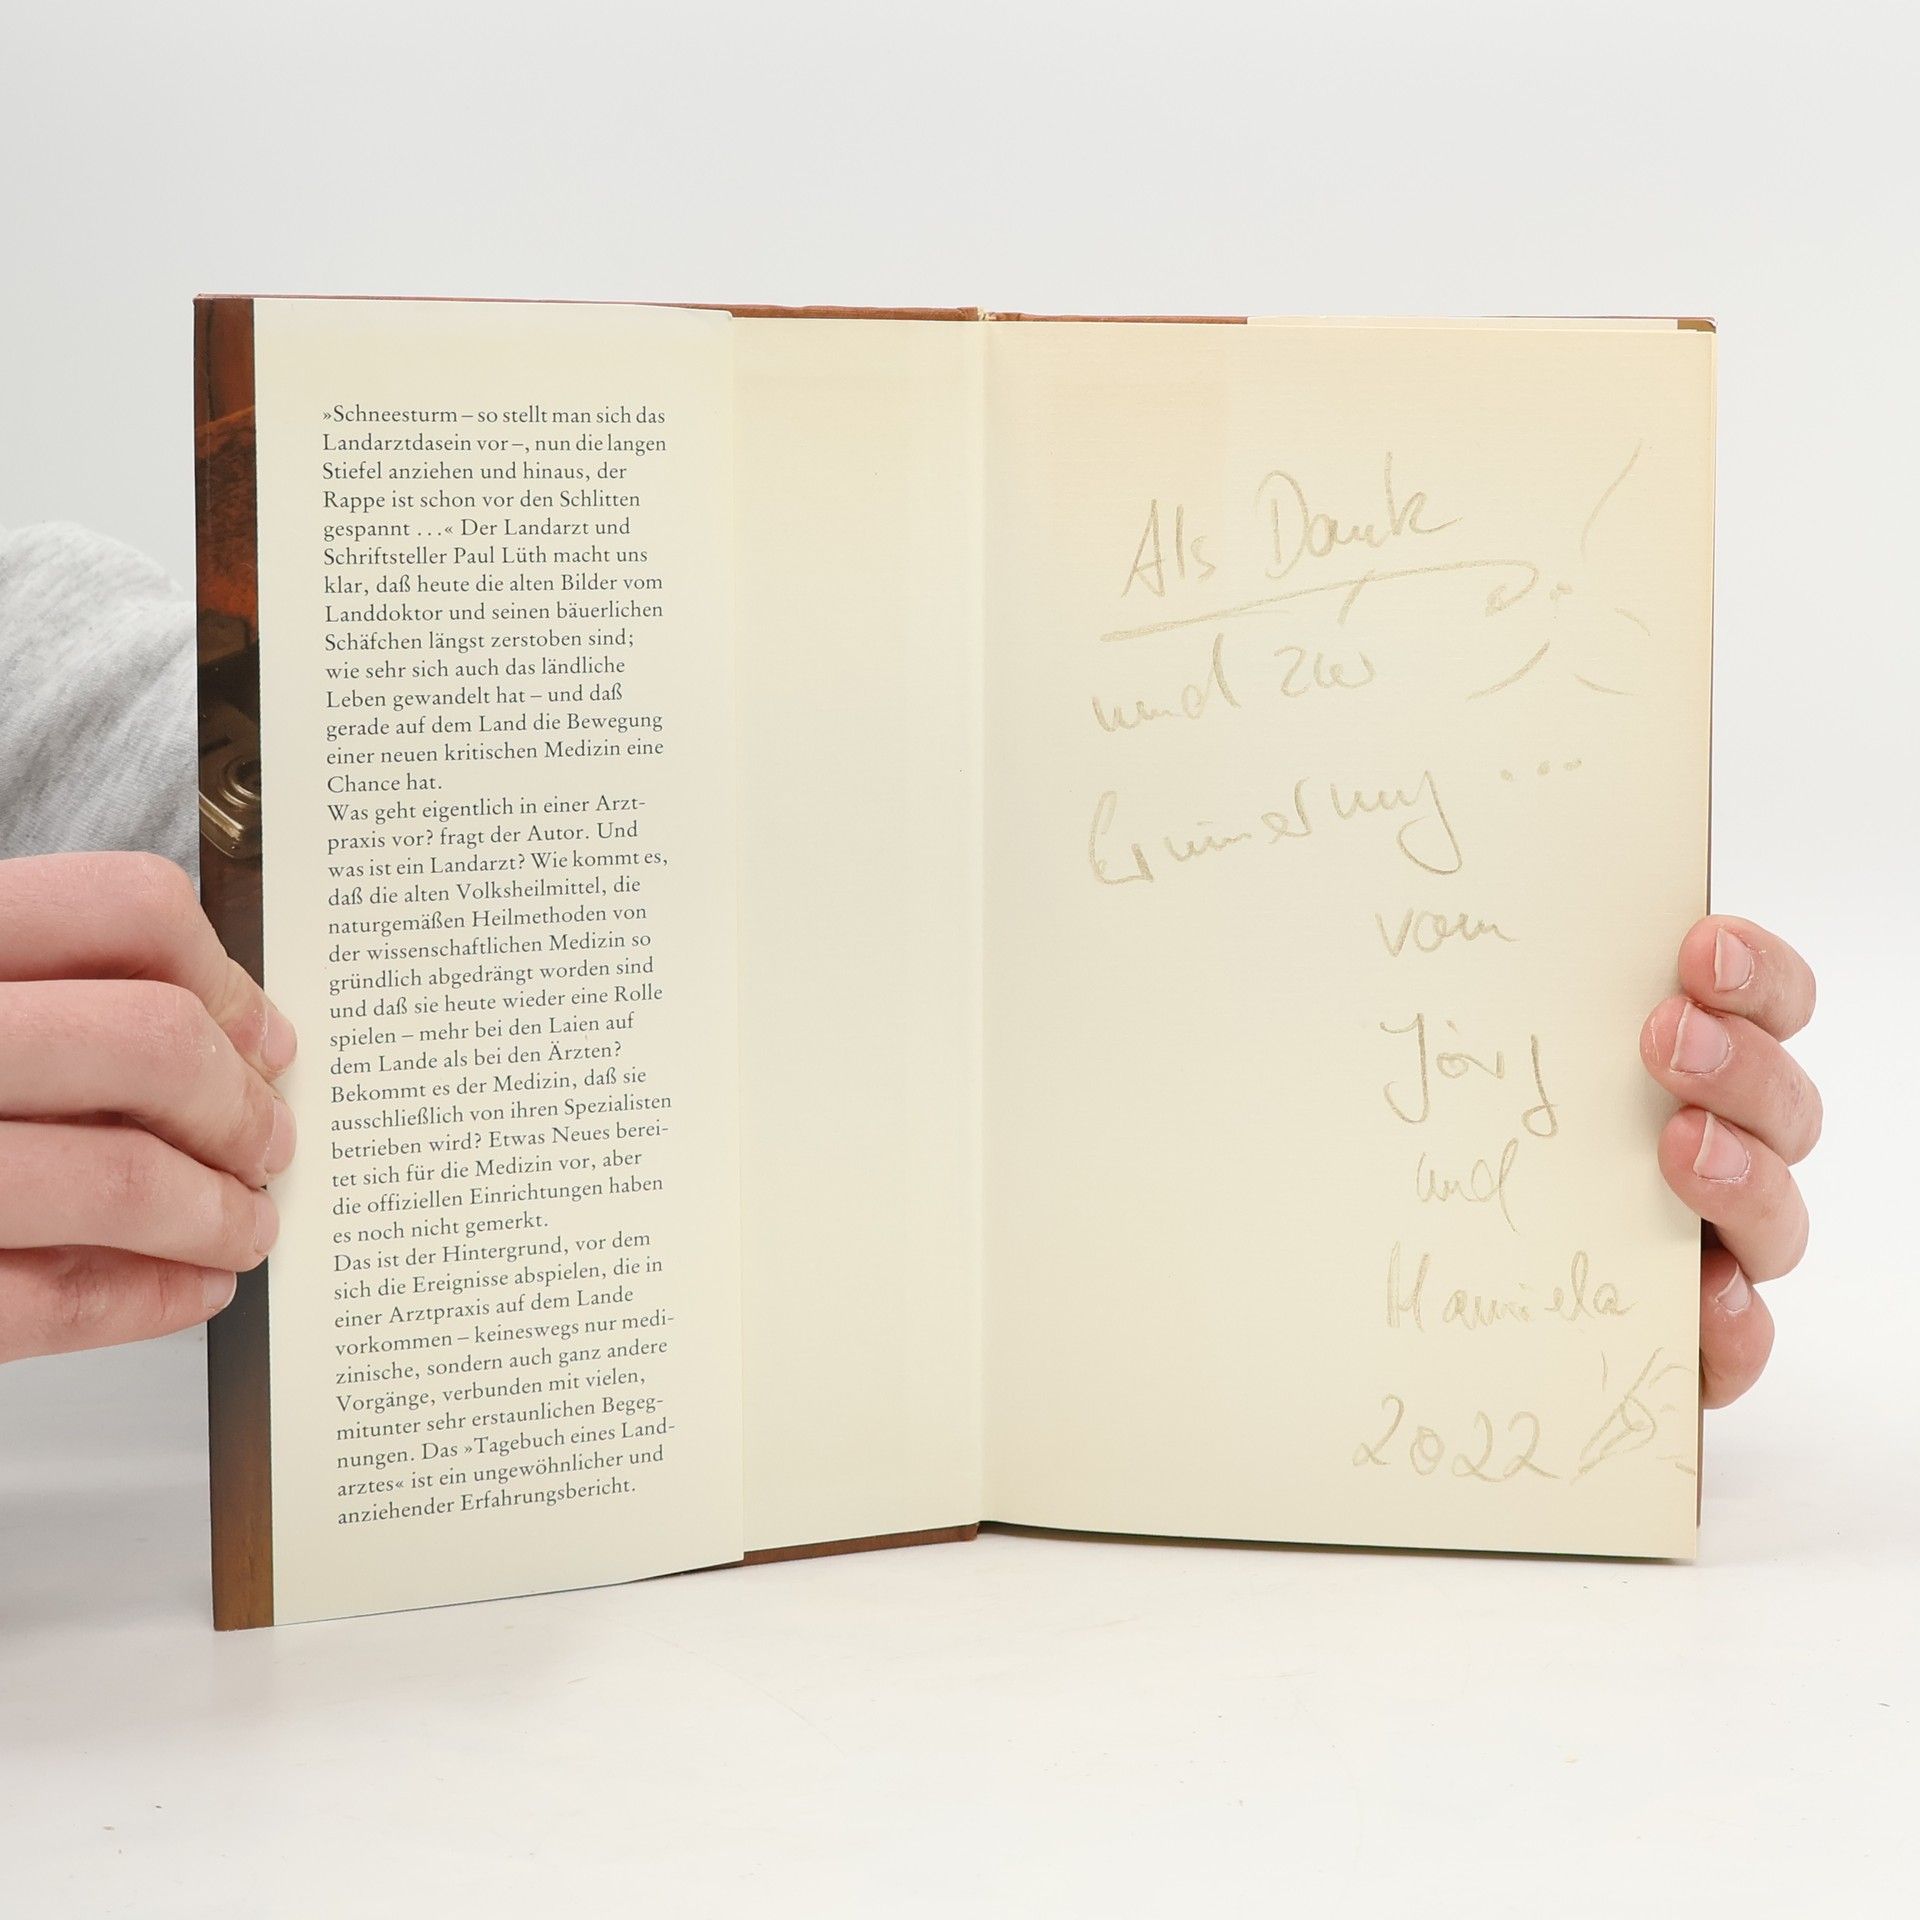 »Schneesturm – so stellt man sich das
Landarztdasein vor –, nun die langen
Stiefel anziehen und hinaus, der
Rappe ist schon vor den Schlitten
gespannt ...« Der Landarzt und
Schriftsteller Paul Lüth macht uns
klar, daß heute die alten Bilder vom
Landdoktor und seinen bäuerlichen
Schäfchen längst zerstoben sind;
wie sehr sich auch das ländliche
Leben gewandelt hat – und daß
gerade auf dem Land die Bewegung
einer neuen kritischen Medizin eine
Chance hat.
Was geht eigentlich in einer Arzt-
praxis vor? fragt der Autor. Und
was ist ein Landarzt? Wie kommt es,
daß die alten Volksheilmittel, die
naturgemäßen Heilmethoden von
der wissenschaftlichen Medizin so
gründlich abgedrängt worden sind
und daß sie heute wieder eine Rolle
spielen – mehr bei den Laien auf
dem Lande als bei den Ärzten?
Bekommt es der Medizin, daß sie
ausschließlich von ihren Spezialisten
betrieben wird? Etwas Neues berei-
tet sich für die Medizin vor, aber
die offiziellen Einrichtungen haben
es noch nicht gemerkt.
Das ist der Hintergrund, vor dem
sich die Ereignisse abspielen, die in
einer Arztpraxis auf dem Lande
vorkommen – keineswegs nur medi-
zinische, sondern auch ganz andere
Vorgänge, verbunden mit vielen,
mitunter sehr erstaunlichen Begeg-
nungen. Das »Tagebuch eines Land-
arztes« ist ein ungewöhnlicher und
anziehender Erfahrungsbericht.
Als Dank
und zur
Erinnerung ...
vom
Jörg
und
Manuela
2022